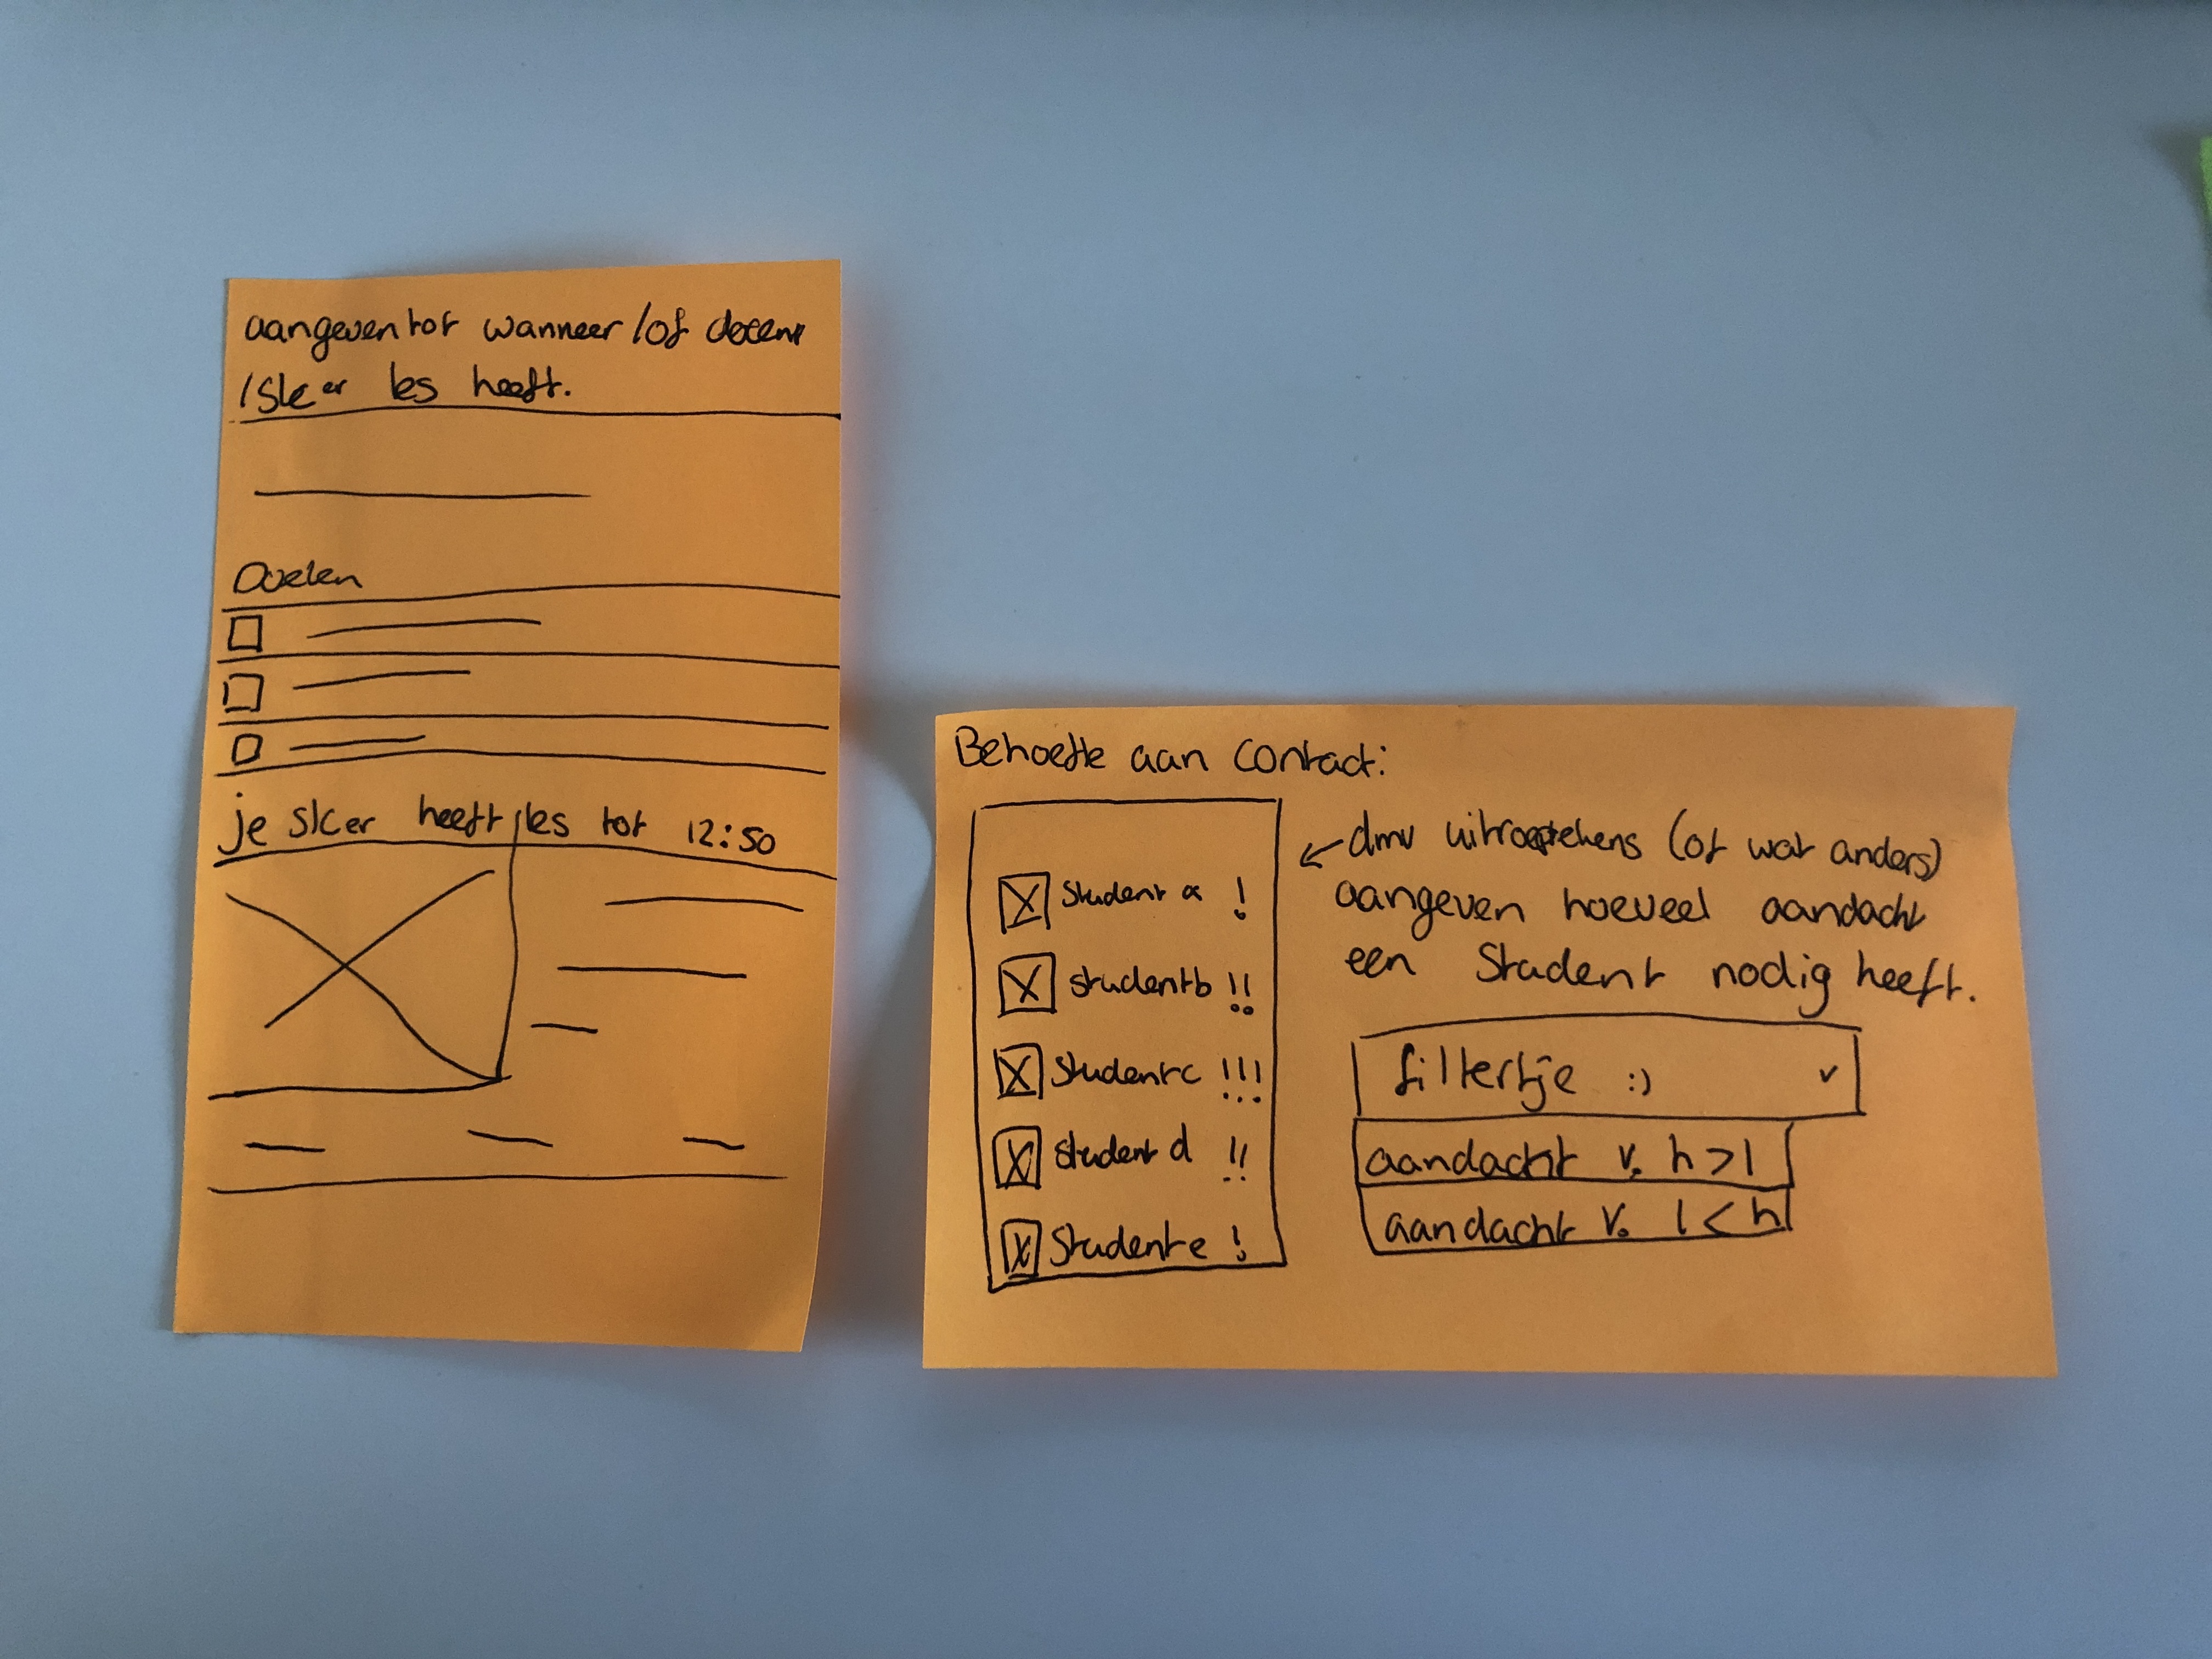 aangeven tot wanneer / of docent
/ slcer les heeft.
Doelen
je slcer heeft les tot 12:50
Behoefte aan contact:
student a !
student b !!
student c !!!
student d !!
student e !
dmv uitroeptekens (of wat anders)
aangeven hoeveel aandacht
een student nodig heeft.
filtertje :) v
aandacht v. h > l
aandacht v. l < h